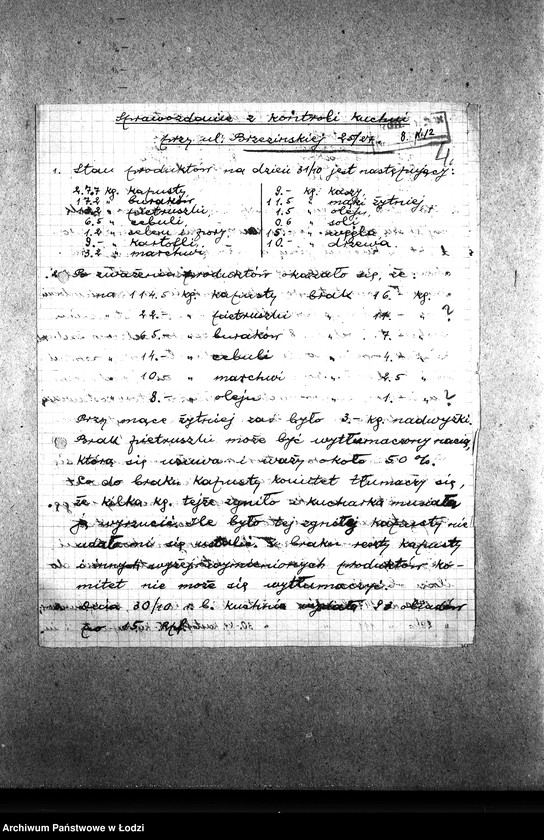 Sprawozdanie z kontroli kuchni
przy ul. Brzezińskiej 25/27
8. XI./2
4.
1. Stan produktów na dzień 31/10 jest następujący:
27.7 kg. kapusty 9.- kg. kaszy
17.2 " buraków 11.5 " mąki żytniej
" pietruszki 1.5 " oleju
6.5 " cebuli 0.6 " soli
1.2 " selera i pory 15.- " węgla
9.- " kartofli 10.- " drzewa
3.2 " marchwi
2. Po zważeniu produktów okazało się, że:
na 114.5 kg. kapusty brak 16.- kg.
" 22.- " pietruszki " 11.- " ?
" 65.- " buraków " 7.- "
" 14.- " cebuli " 4.- "
" 10.- " marchwi " 2.5 "
" 8.- " oleju " 1.- " ?
Przy mące żytniej zaś było 3.- kg. nadwyżki.
Brak pietruszki może być wytłumaczony nacią,
którą się usuwa i waży około 50%.
Co do braku kapusty komitet tłumaczy się,
że kilka kg. tejże zgniło i kucharka musiała
ją wyrzucić. Ile było tej zgniłej kapusty nie
udało mi się ustalić. Z braku reszty kapusty
i innych wyżej wymienionych produktów ko-
mitet nie może się wytłumaczyć.
Dnia 30/10 r. b. kuchnia wydała 93 obiadów
po 15 Rpf.
Archiwum Państwowe w Łodzi